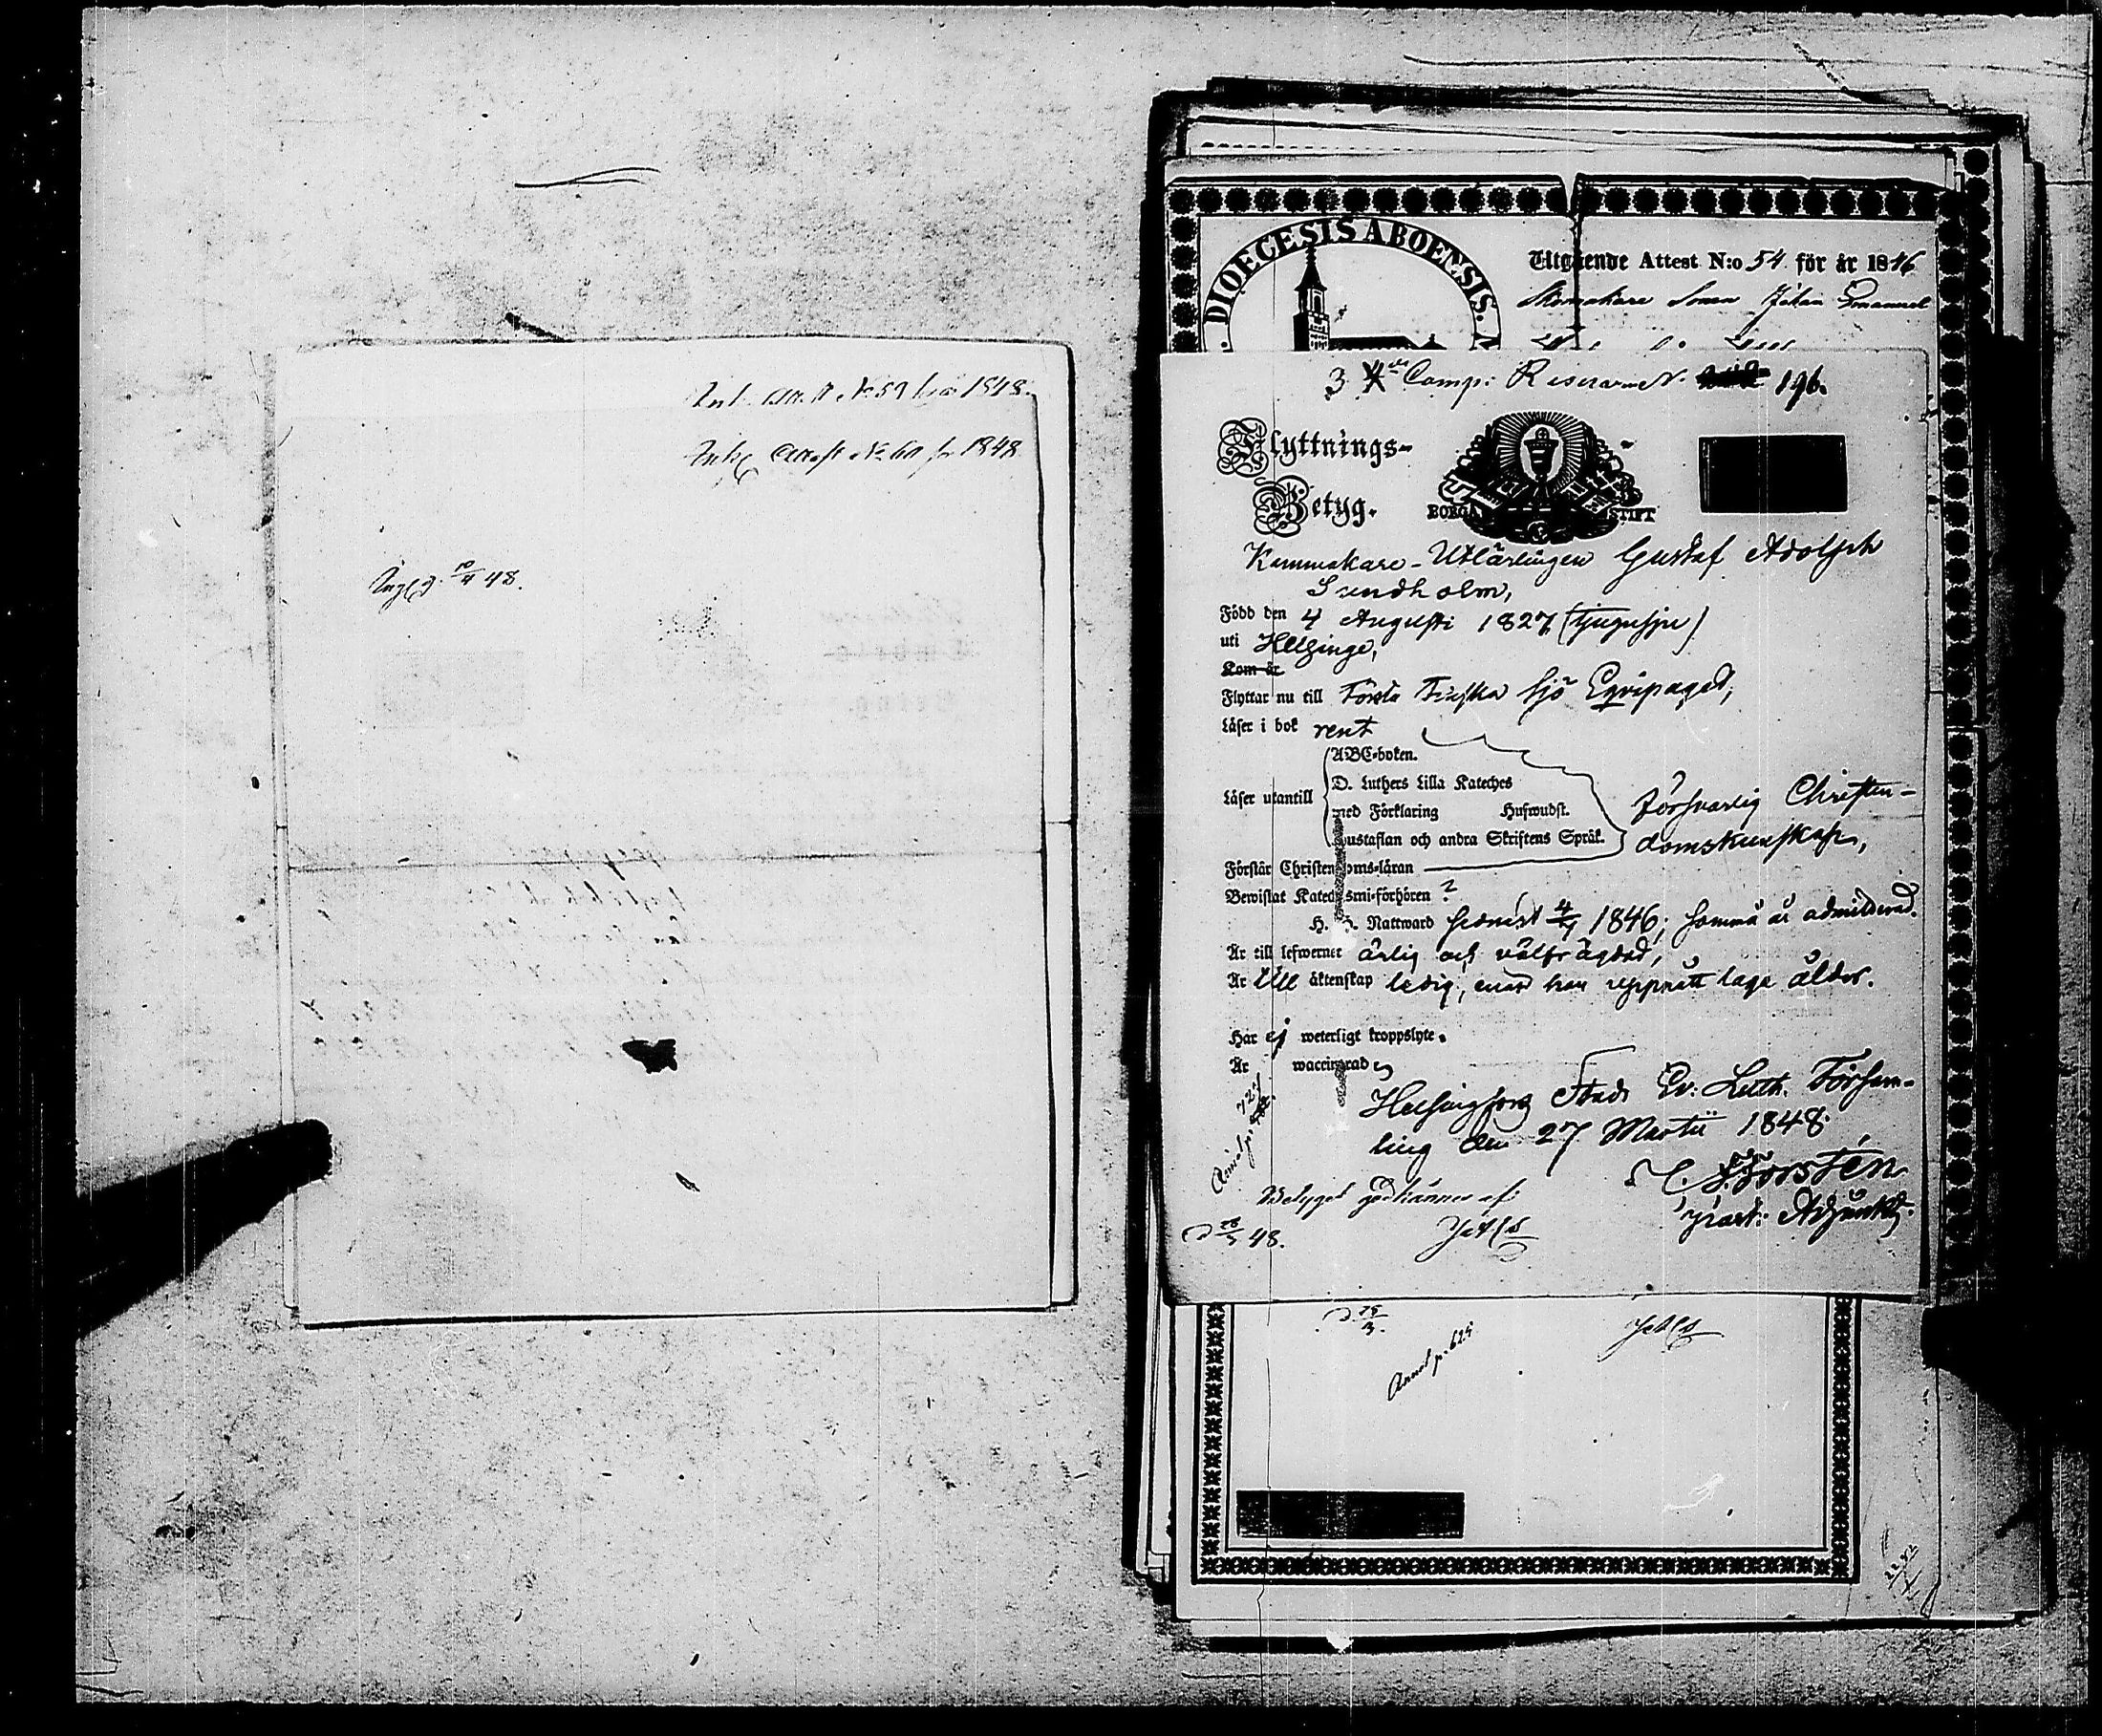 Attest No 59 för 1848.
Ink. Attest No 60 för 1848
48.
DIOECESIS ABOENSIS.
Utgående Attest N:o 54 för år 1846
Skomakare Sonen Johan Emanuel
3 Comp: Reserven N. 196.
Flyttnings-
Betyg.
BORGÅ STIFT
Kammakare-Utlärlingen Gustaf Adolph
Sundholm,
Född den 4 Augusti 1827 (tjugusju)
uti Helsinge,
Kom år
Flyttar nu till Första Finska Sjö Equipaget,
Läser i bok rent
ABC-boken.
D. Luthers Lilla Kateches
Läser utantill med Förklaring Hufwudst.
Hustaflan och andra Skriftens Språk.
försvarlig Christen-
domskunskap,
Förstår Christendoms-läran
Bewistat Katechismi-förhören ?
H. H. Nattward sednast 1846, samma år admitterad.
Är till lefwernet ärlig och välfrägdad,
Är till äktenskap ledig, enär han uppnått laga ålder.
Har ej weterligt kroppslyte.
Är waccinerad
Helsingfors Stads Ev: Luth. Församling
ling den 27 Martii 1848.
Forstén
Adjunkt.
Betyget godkännes af:
48.
Annot p. 625